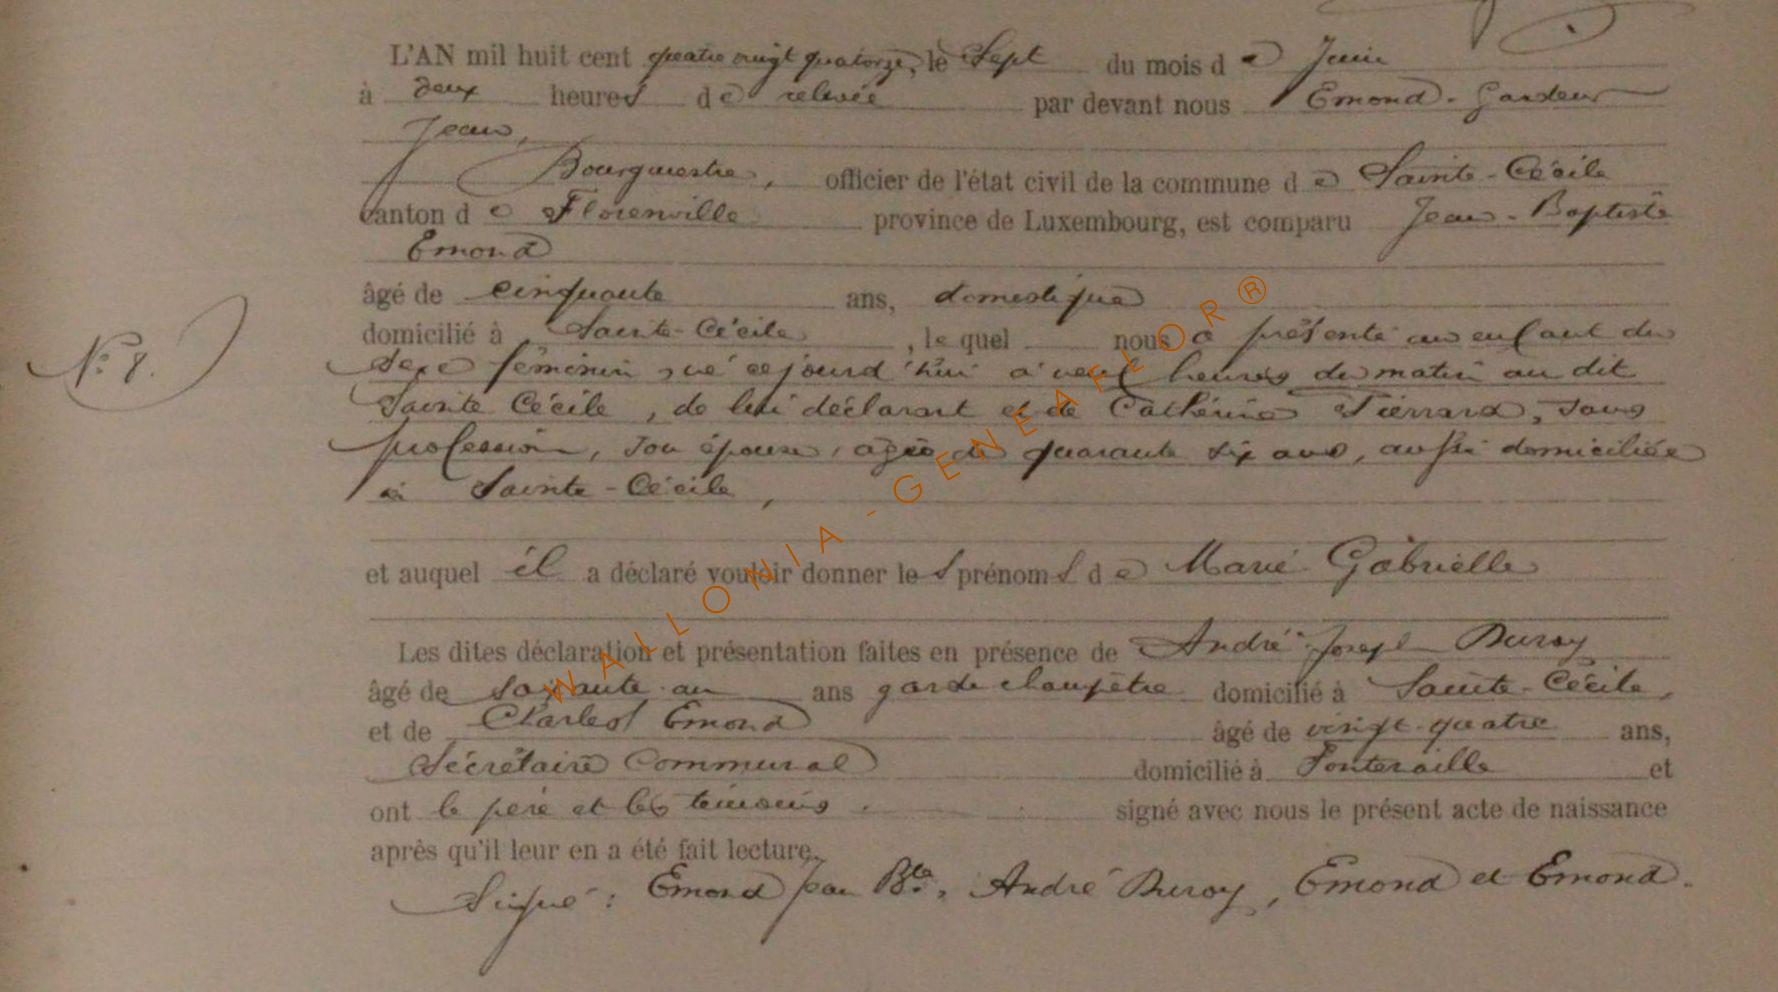 L'AN mil huit cent quatre vingt quatorze, le Sept du mois de Juin
à deux heures de relevée par devant nous Emond-Gardeur
Jean,
Bourgmestre, officier de l'état civil de la commune de Sainte-Cécile
canton de Florenville province de Luxembourg, est comparu Jean-Baptiste
Emond
âgé de cinquante ans, domestique
domicilié à Sainte-Cécile, lequel nous a présenté un enfant du
N° 8.
sexe féminin, né cejourd'hui à neuf heures du matin au dit
Sainte Cécile, de lui déclarant et de Cathérine Tiérrard, sans
profession, son épouse, agée de quarante six ans, aussi domiciliée
à Sainte-Cécile,
et auquel il a déclaré vouloir donner les prénoms de Marie Gabrielle
Les dites déclaration et présentation faites en présence de André-Joseph Duroy
âgé de soixante-un ans garde champêtre domicilié à Sainte-Cécile,
et de Charles Emond âgé de vingt-quatre ans,
Sécrétaire Communal domicilié à Fontenoille et
ont le père et les témoins signé avec nous le présent acte de naissance
après qu'il leur en a été fait lecture.
Signé: Emond Jean Bte., André Duroy, Emond et Emond.
WALLONIA-GENEAFLOR®